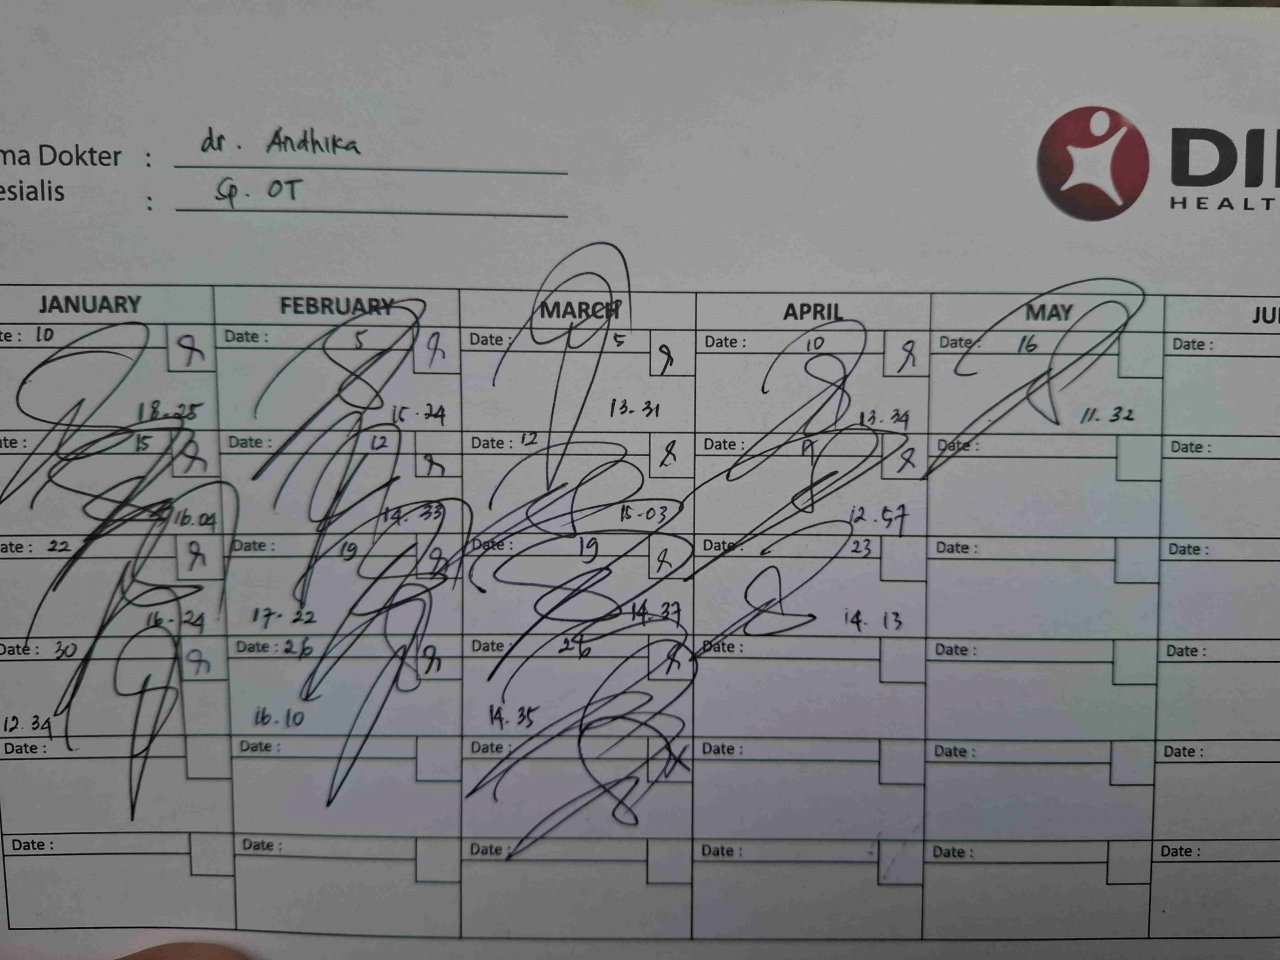 ma Dokter : dr. Andhika
esialis : Sp. OT
DI
HEALT
JANUARY FEBRUARY MARCH APRIL MAY JU
te : 10 Date : 5 Date : 5 Date : 10 Date : 16 Date :
18.25 15.24 13.31 13.34 11.32
ate : 15 Date : 12 Date : 12 Date : 9 Date : Date :
16.04 14.33 15.03 12.57
ate : 22 Date : 19 Date : 19 Date : 23 Date : Date :
16.24 17.22 14.37 14.13
Date : 30 Date : 26 Date : 26 Date : Date : Date :
12.34 16.10 14.35
Date : Date : Date : Date : Date : Date :
Date : Date : Date : Date : Date : Date :